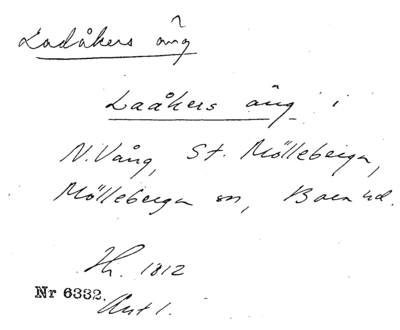 Ladåkers äng
Laåkers äng i
N. Vång, St. Mölleberga,
Mölleberga sn, Bara hd.
Hh. 1812
Nr 6332.
Akt 1.